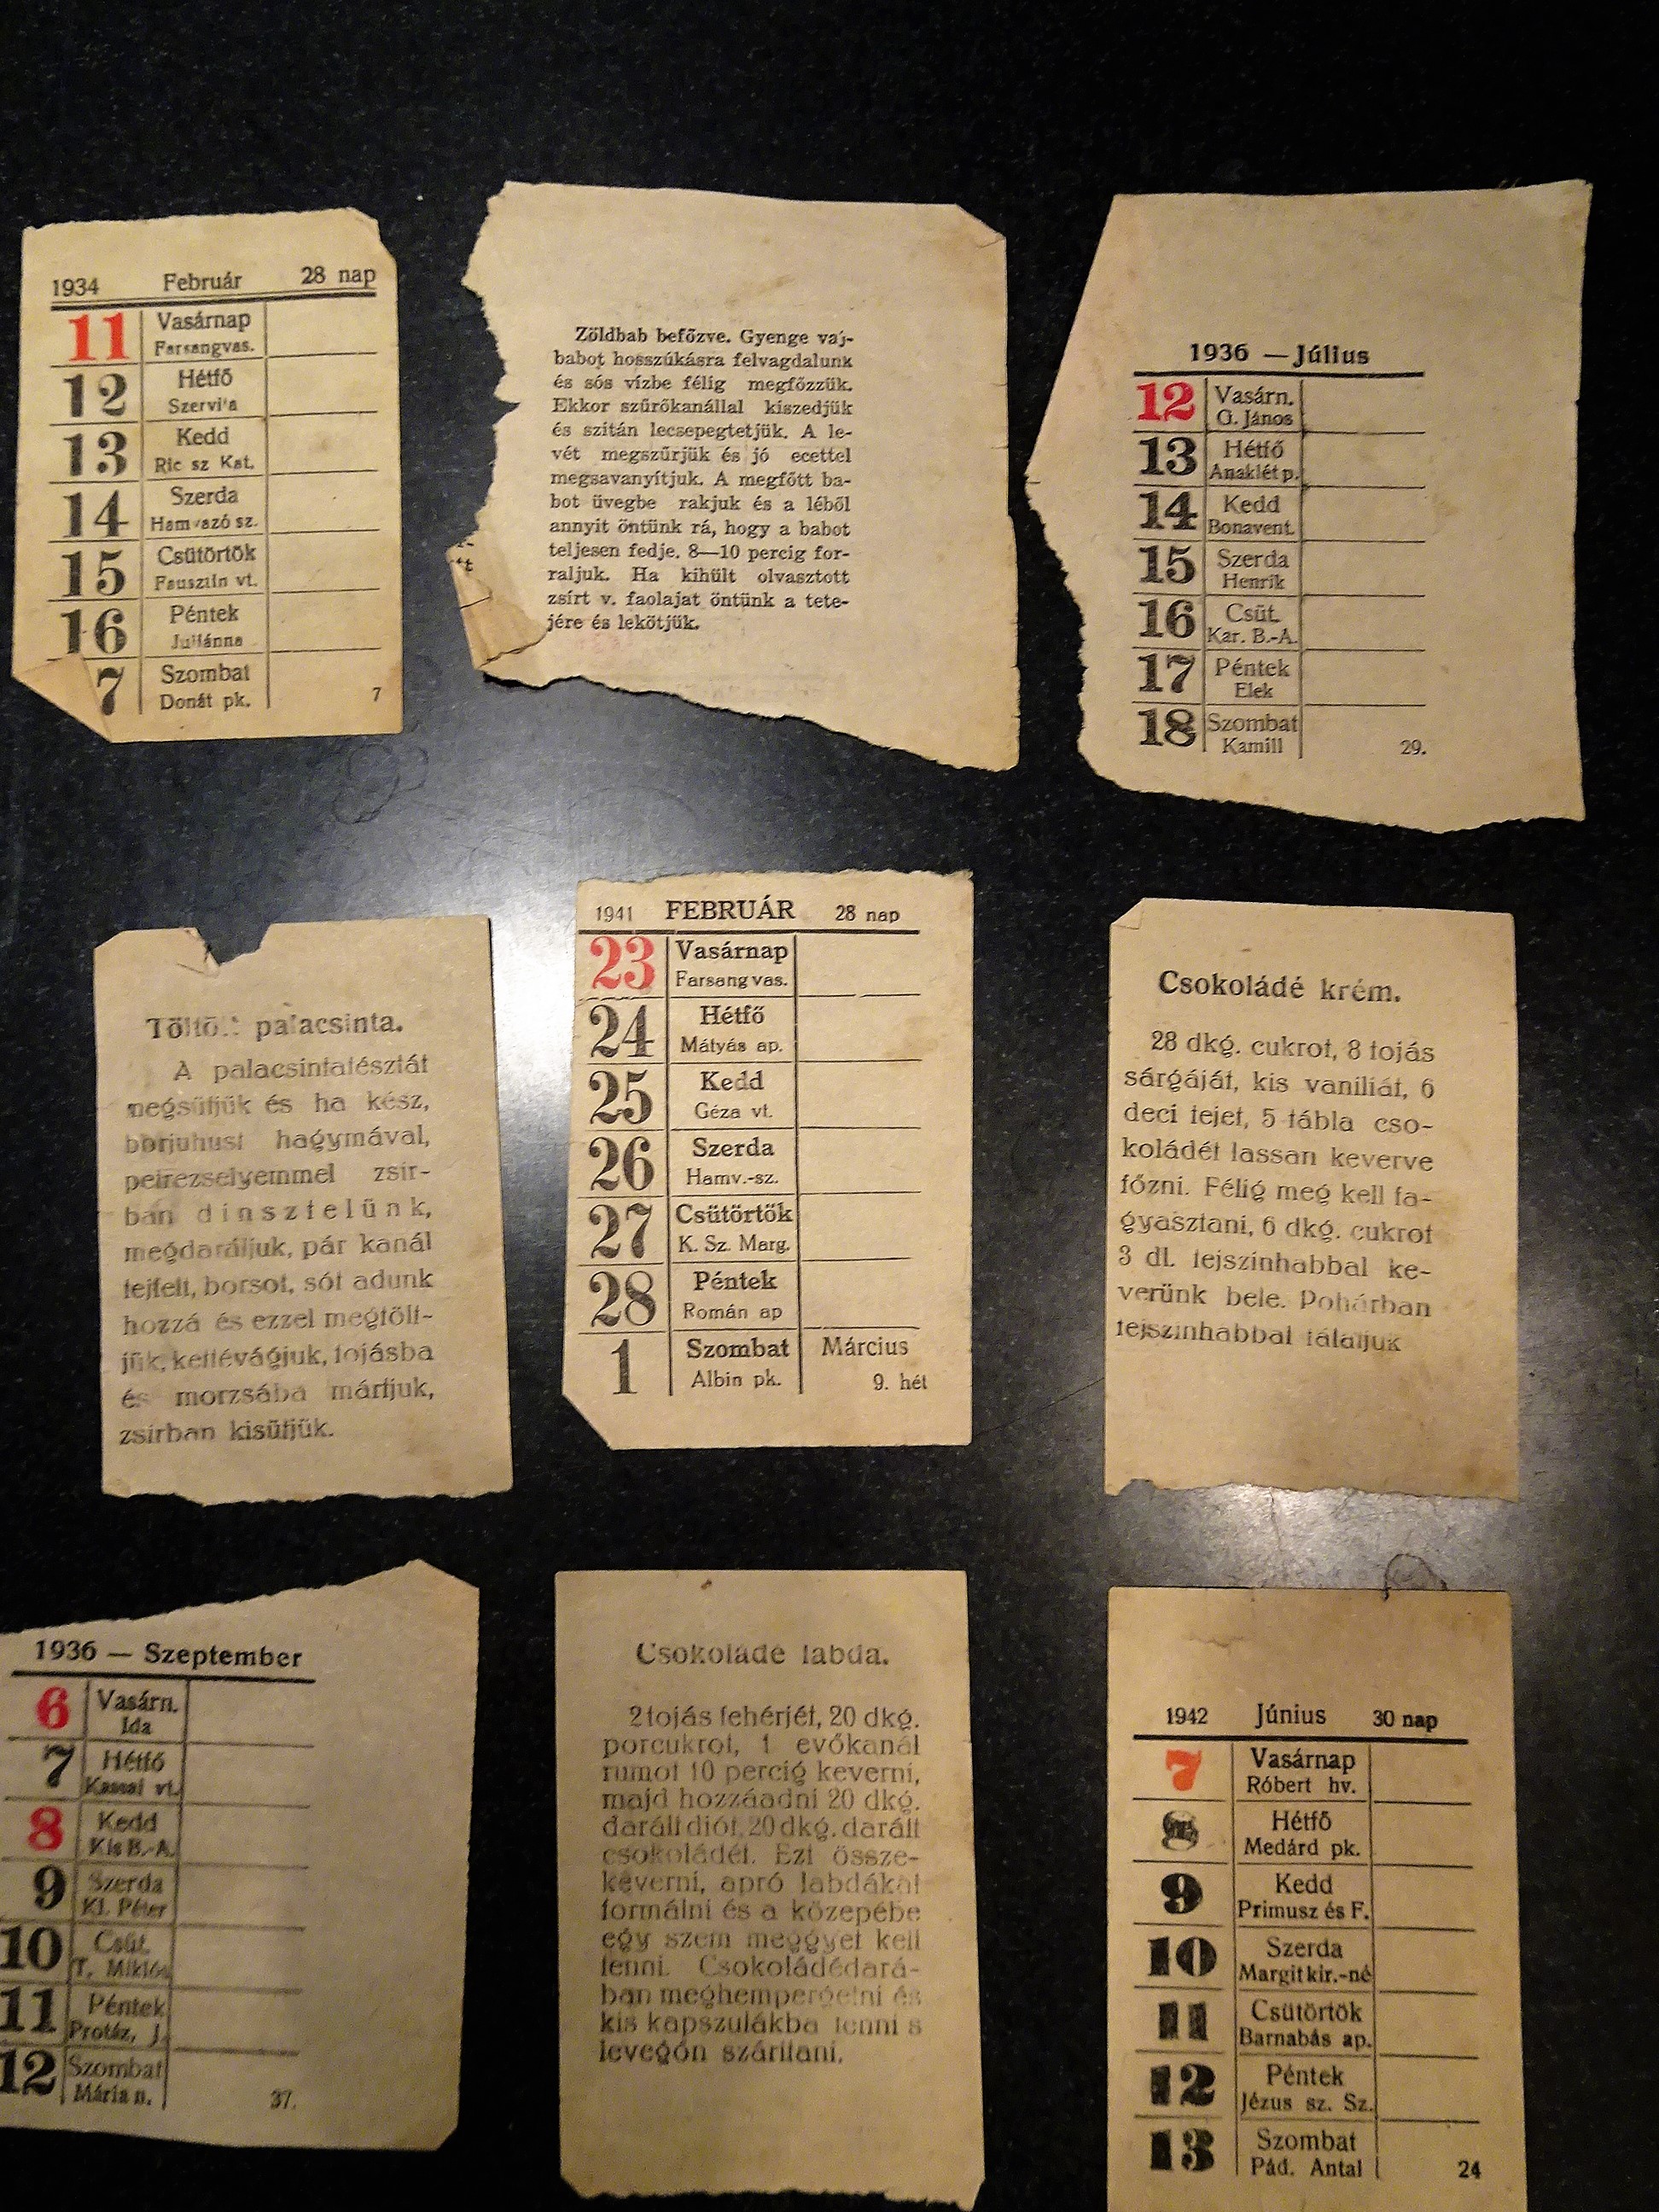 1934 Február 28 nap
11 Vasárnap
Farsangvas.
12 Hétfő
Szervi'a
13 Kedd
Ric sz Kat.
14 Szerda
Hamvazó sz.
15 Csütörtök
Fausztin vt.
16 Péntek
Juliánna
7 Szombat
Donát pk. 7
Zöldbab befőzve. Gyenge vaj-
babot hosszúkásra felvagdalunk
és sós vízbe félig megfőzzük.
Ekkor szűrőkanállal kiszedjük
és szitán lecsepegtetjük. A le-
vét megszűrjük és jó ecettel
megsavanyítjuk. A megfőtt ba-
bot üvegbe rakjuk és a léből
annyit öntünk rá, hogy a babot
teljesen fedje. 8—10 percig for-
raljuk. Ha kihült olvasztott
zsírt v. faolajat öntünk a tete-
jére és lekötjük.
1936 — Július
12 Vasárn.
G. János
13 Hétfő
Anaklét p.
14 Kedd
Bonavent.
15 Szerda
Henrik
16 Csüt.
Kar. B.-A.
17 Péntek
Elek
18 Szombat
Kamill 29.
Töltött palacsinta.
A palacsintatésztát
megsütjük és ha kész,
borjuhust hagymával,
petrezselyemmel zsir-
ban dinsztelünk,
megdaráljuk, pár kanál
tejfelt, borsot, sót adunk
hozzá és ezzel megtölt-
jük, kettévágjuk, tojásba
és morzsába mártjuk,
zsirban kisütjük.
1941 FEBRUÁR 28 nap
23 Vasárnap
Farsang vas.
24 Hétfő
Mátyás ap.
25 Kedd
Géza vt.
26 Szerda
Hamv.-sz.
27 Csütörtök
K. Sz. Marg.
28 Péntek
Román ap
1 Szombat Március
Albin pk. 9. hét
Csokoládé krém.
28 dkg. cukrot, 8 tojás
sárgáját, kis vaniliát, 6
deci tejet, 5 tábla cso-
koládét lassan keverve
főzni. Félig meg kell fa-
gyasztani, 6 dkg. cukrot
3 dl. tejszinhabbal ke-
verünk bele. Pohárban
tejszinhabbal tálaljuk
1936 — Szeptember
6 Vasárn.
Ida
7 Hétfő
Kassai vt.
8 Kedd
Kis B.-A.
9 Szerda
Kl. Péter
10 Csüt.
T. Miklós
11 Péntek
Protáz, J.
12 Szombat
Mária n. 37.
Csokoládé labda.
2 tojás fehérjét, 20 dkg.
porcukrot, 1 evőkanál
rumot 10 percig keverni,
majd hozzáadni 20 dkg.
darált diót, 20 dkg. darált
csokoládét. Ezt össze-
keverni, apró labdákat
formálni és a közepébe
egy szem meggyet kell
tenni. Csokoládédará-
ban meghempergetni és
kis kapszulákba tenni s
levegőn szárítani.
1942 Június 30 nap
7 Vasárnap
Róbert hv.
8 Hétfő
Medárd pk.
9 Kedd
Primusz és F.
10 Szerda
Margit kir.-né
11 Csütörtök
Barnabás ap.
12 Péntek
Jézus sz. Sz.
13 Szombat
Pád. Antal 24